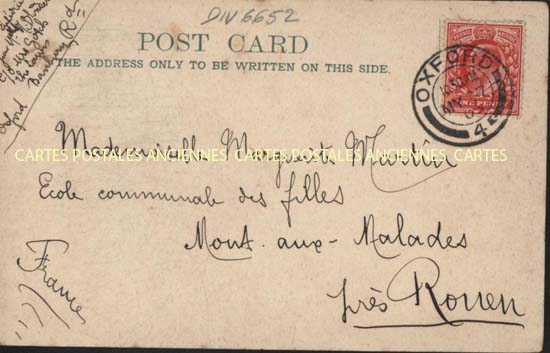 DIV 6652
POST CARD
THE ADDRESS ONLY TO BE WRITTEN ON THIS SIDE.
Banbury Rd
Oxford
OXFORD
4
ONE PENNY
Mademoiselle Marguerite Martin
CARTES POSTALES ANCIENNES CARTES POSTALES ANCIENNES CARTES
Ecole communale des filles
Mont-aux-Malades
près Rouen
France